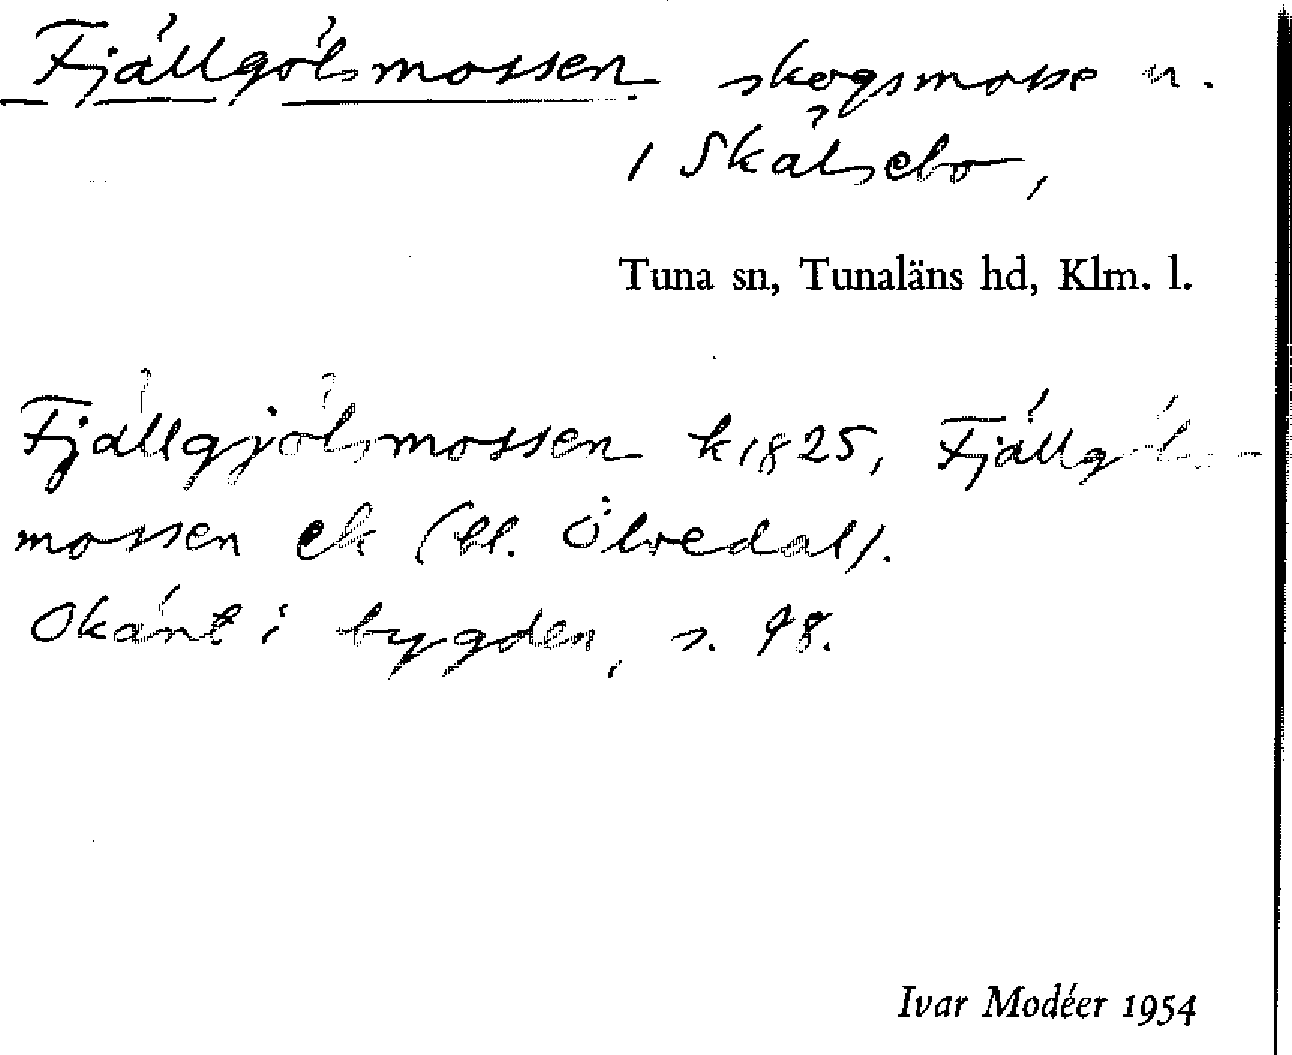 Fjällgölsmossen skogsmosse n.
/ Skälsebo,
Tuna sn, Tunaläns hd, Klm. l.
Fjällgjölsmossen k1825, Fjällgöls-
mossen ek (bl. Ölvedal).
Okänt i bygden, s. 98.
Ivar Modéer 1954